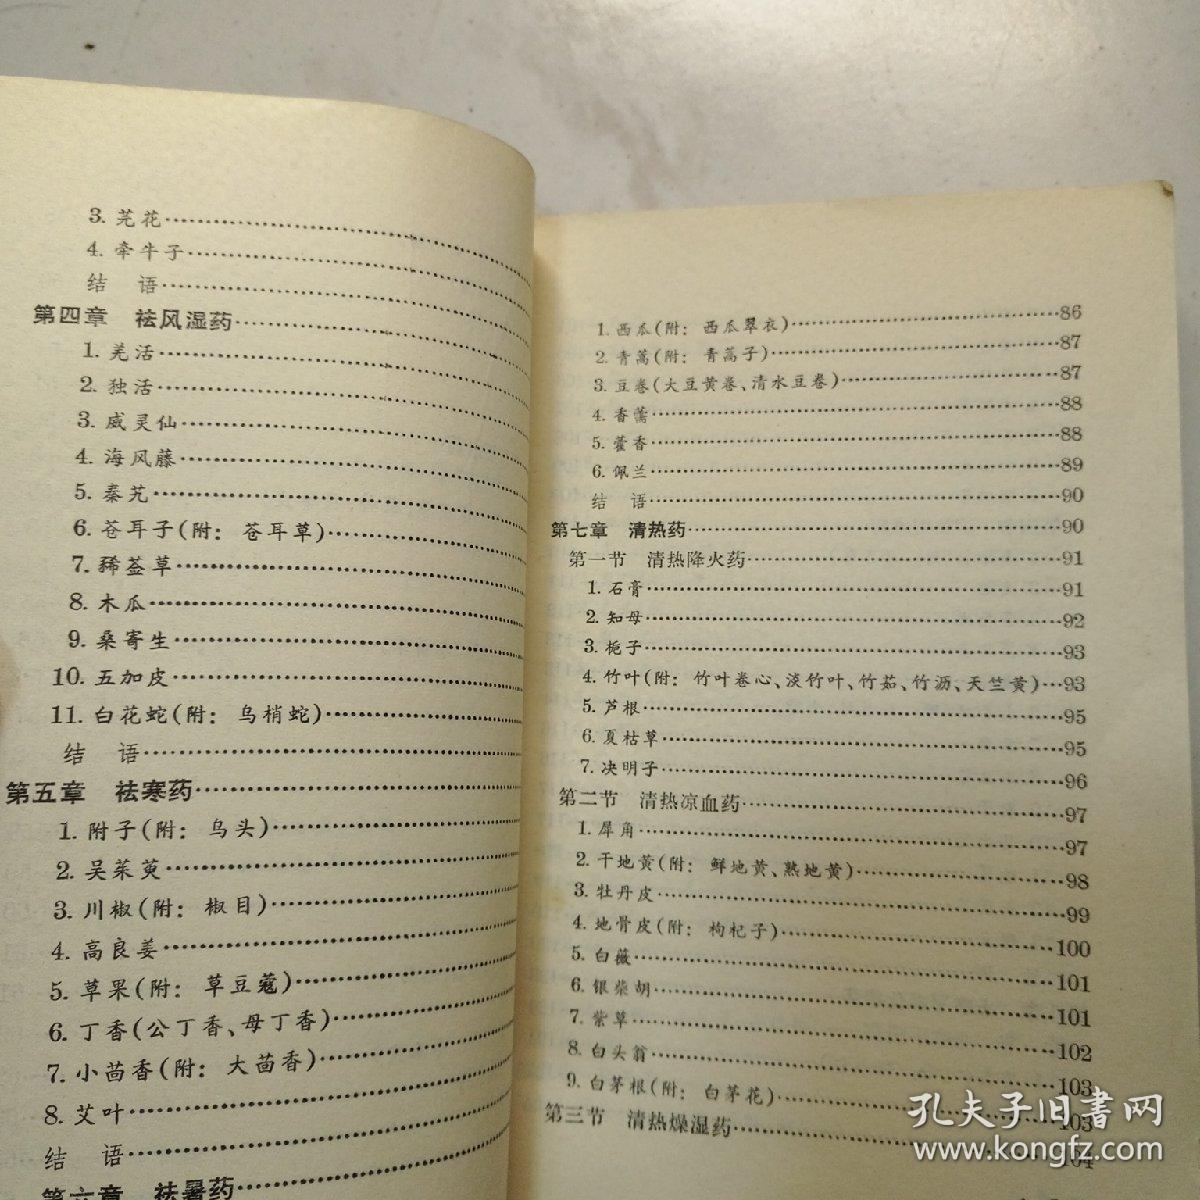 3. 芫花
4. 牵牛子
结 语
第四章 祛风湿药
1. 羌活
2. 独活
3. 威灵仙
4. 海风藤
5. 秦艽
6. 苍耳子(附: 苍耳草)
7. 豨莶草
8. 木瓜
9. 桑寄生
10. 五加皮
11. 白花蛇(附: 乌梢蛇)
结 语
第五章 祛寒药
1. 附子(附: 乌头)
2. 吴茱萸
3. 川椒(附: 椒目)
4. 高良姜
5. 草果(附: 草豆蔻)
6. 丁香(公丁香、母丁香)
7. 小茴香(附: 大茴香)
8. 艾叶
结 语
第六章 祛暑药
1. 西瓜(附: 西瓜翠衣)……86
2. 青蒿(附: 青蒿子)……87
3. 豆卷(大豆黄卷、清水豆卷)……87
4. 香薷……88
5. 藿香……88
6. 佩兰……89
结 语……90
第七章 清热药……90
第一节 清热降火药……91
1. 石膏……91
2. 知母……92
3. 栀子……93
4. 竹叶(附: 竹叶卷心、淡竹叶、竹茹、竹沥、天竺黄)…93
5. 芦根……95
6. 夏枯草……95
7. 决明子……96
第二节 清热凉血药……97
1. 犀角……97
2. 干地黄(附: 鲜地黄、熟地黄)……98
3. 牡丹皮……99
4. 地骨皮(附: 枸杞子)……100
5. 白薇……101
6. 银柴胡……101
7. 紫草……102
8. 白头翁……103
9. 白茅根(附: 白茅花)……103
第三节 清热燥湿药……104
孔夫子旧書网
www.kongfz.com